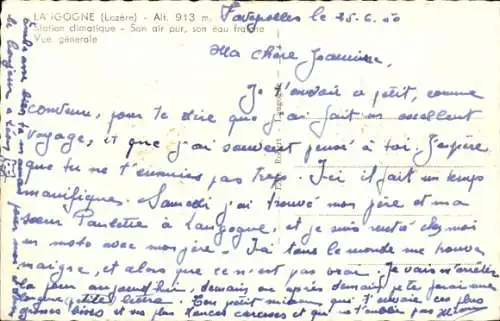 LANGOGNE (Lozère) - Alt. 913 m.
Station climatique - Son air pur, son eau fraîche
Vue générale
le 25-6-50
Ma chère Jeannine,
Je t'envoie ce petit, comme
convenu, pour te dire que j'ai fait un excellent
voyage, et que j'ai souvent pensé à toi. J'espère
que tu ne t'ennuies pas trop. Ici il fait un temps
magnifique. Samedi j'ai trouvé mon père et ma
sœur Paulette à Langogne, et je suis rentré chez moi
en moto avec mon père. Ici tout le monde me trouve
maigre, et alors que ce n'est pas vrai. Je vais m'arrêter
là pour aujourd'hui, demain ou après demain je te ferai une
longue lettre. Ton petit qui t'envoie ces plus
grosses bises et ses plus tendres caresses et qui ne t'oublie pas